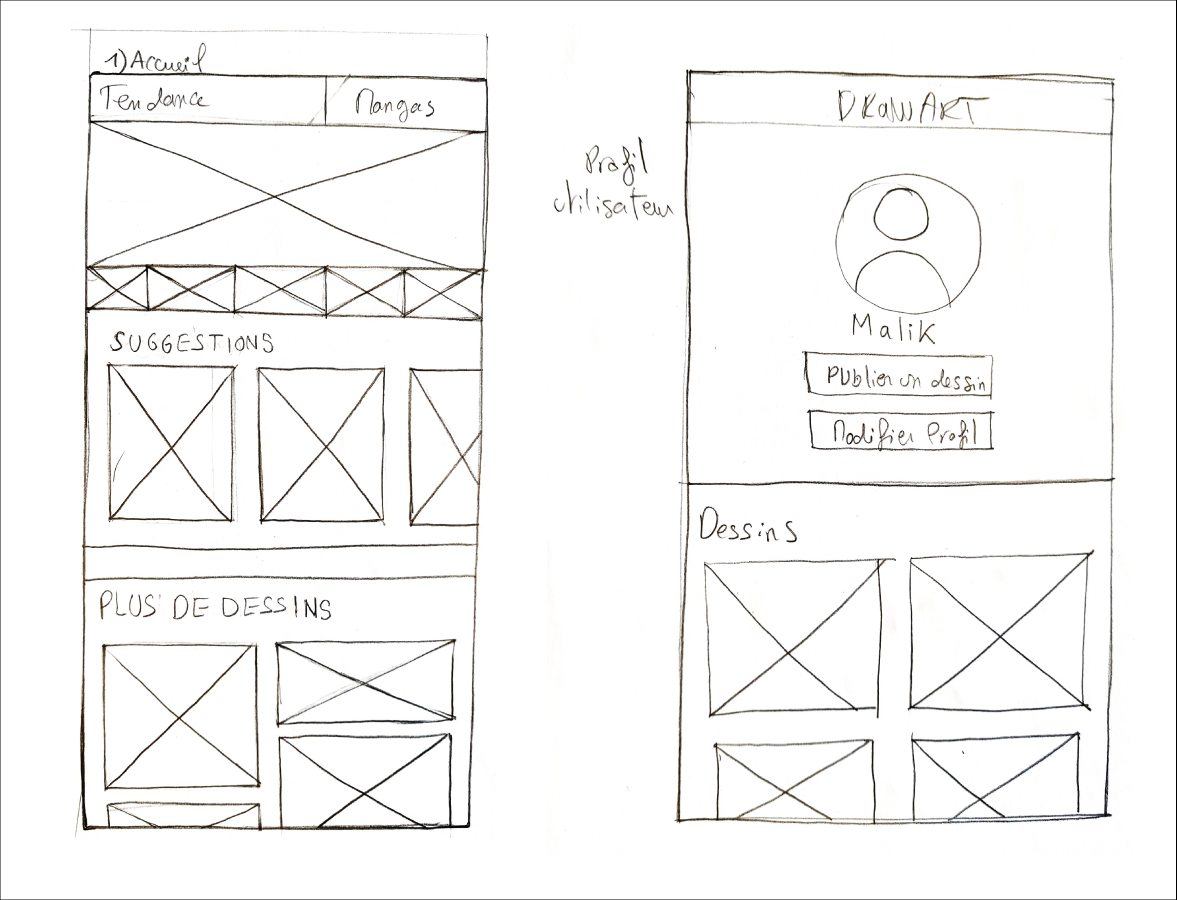 1) Accueil
Tendance
Mangas
SUGGESTIONS
PLUS DE DESSINS
Profil
utilisateur
DRAWART
Malik
PUblier un dessin
Modifier Profil
Dessins